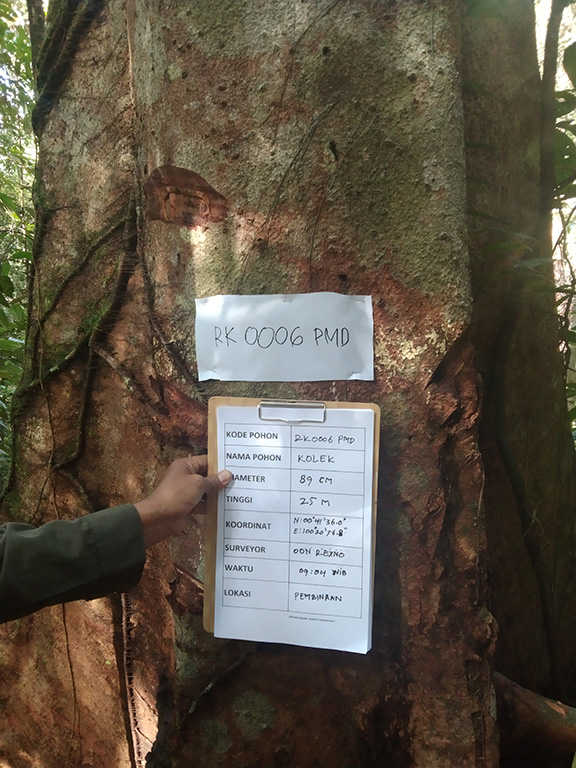 RK 0006 PMD
KODE POHON RK0006 PMD
NAMA POHON KOLEK
DIAMETER 89 CM
TINGGI 25 M
KOORDINAT N:00°41'36.0"
E:100°20'56.8"
SURVEYOR DON
WAKTU 09:04 WIB
LOKASI PEMBINAAN